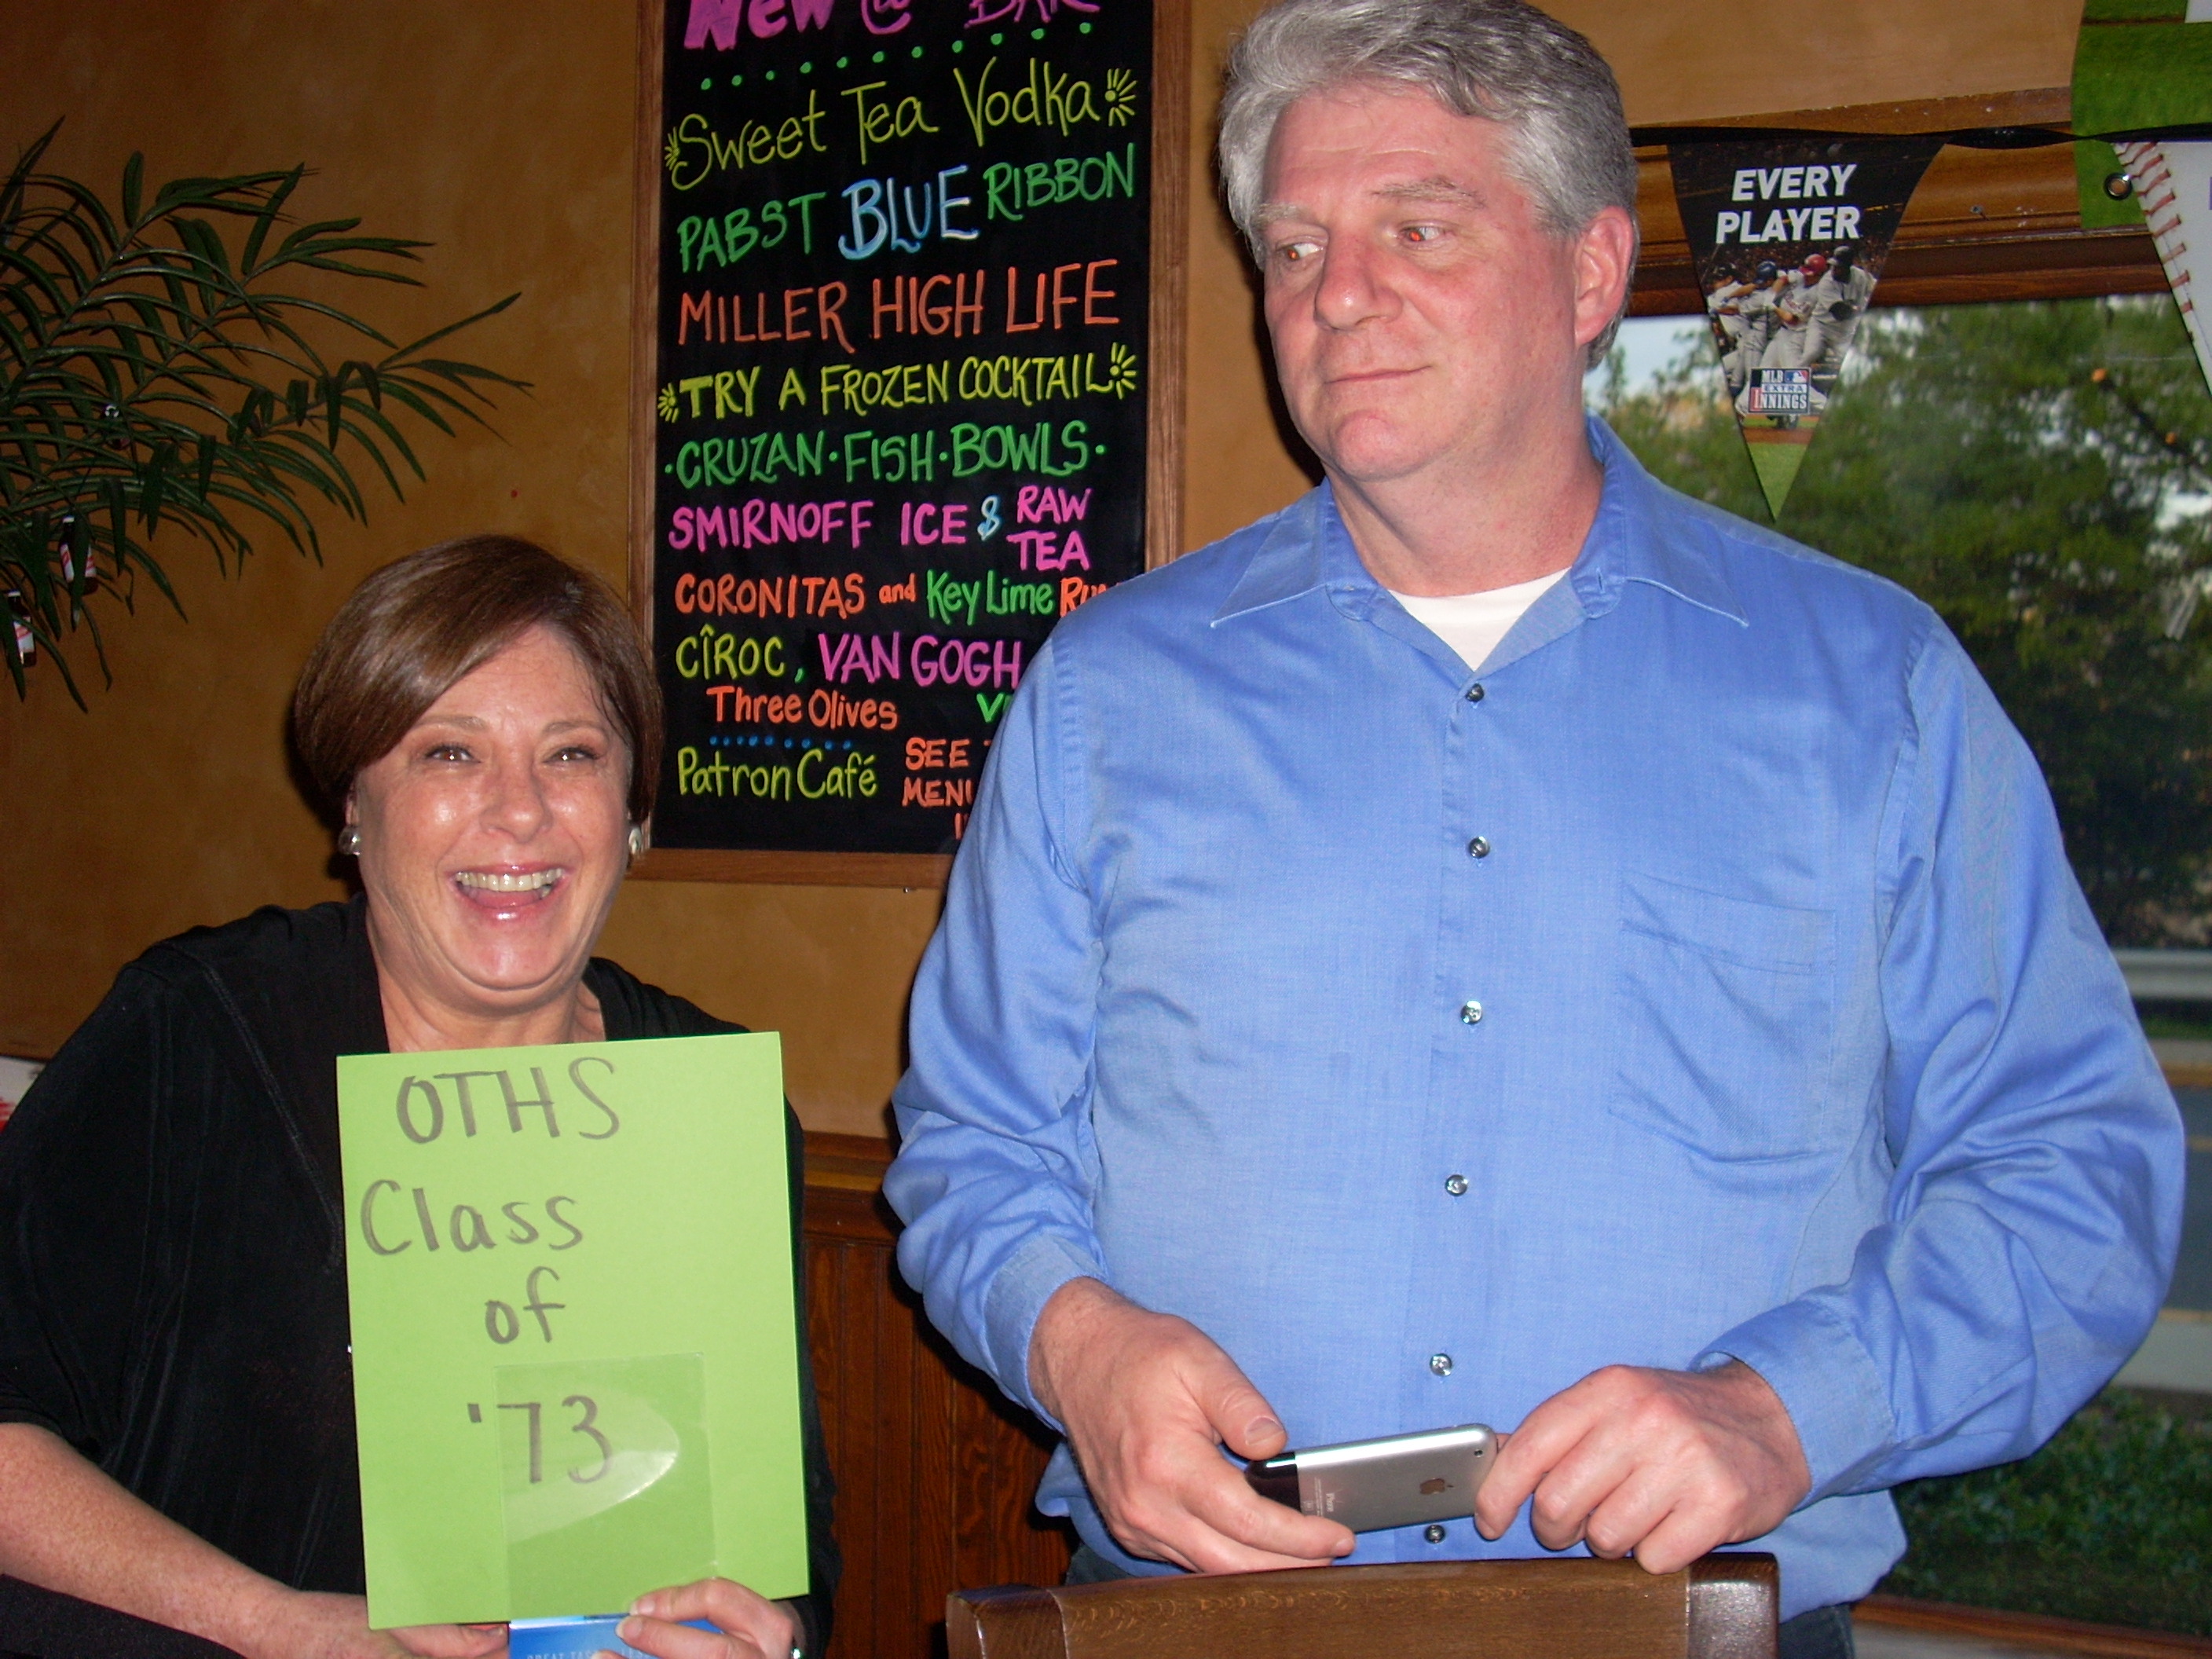 New @ BAR
Sweet Tea Vodka
PABST BLUE RIBBON
MILLER HIGH LIFE
TRY A FROZEN COCKTAIL
·CRUZAN·FISH·BOWLS·
SMIRNOFF ICE & RAW TEA
CORONITAS and Key Lime
CÎROC, VAN GOGH
Three Olives
Patron Café
SEE
MENU
EVERY
PLAYER
MLB
EXTRA
INNINGS
OTHS
Class
of
'73
iPhone